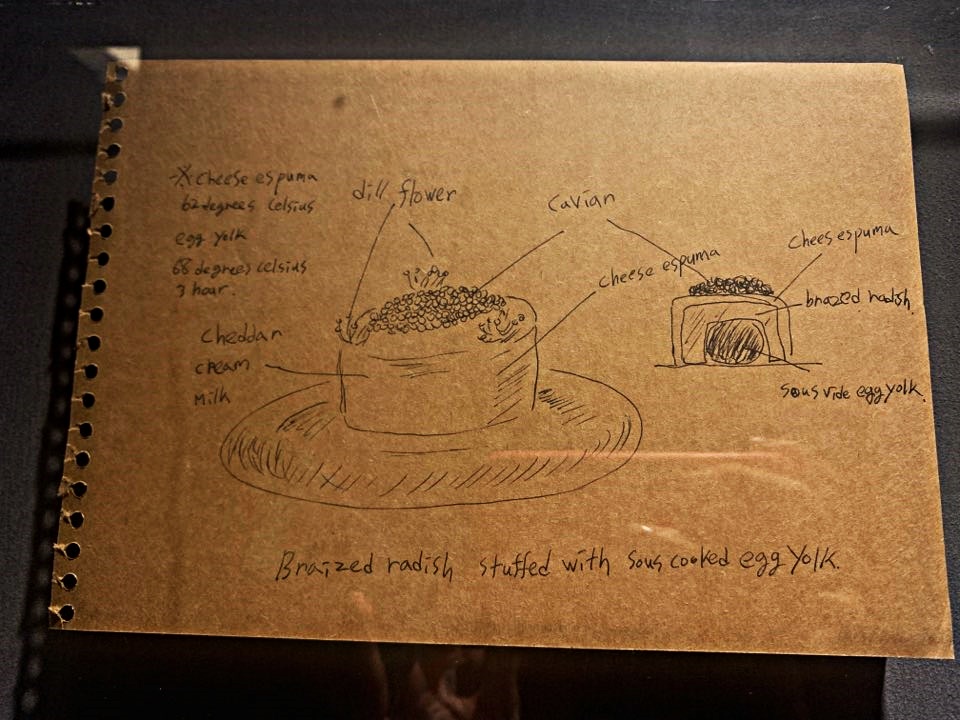 ※ cheese espuma
62 degrees celsius
egg yolk
68 degrees celsius
3 hour.
dill flower
Caviar
cheese espuma
Chees espuma
brazed radish
sous vide egg yolk
Cheddar
cream
Milk
Braized radish stuffed with sous cooked egg yolk.